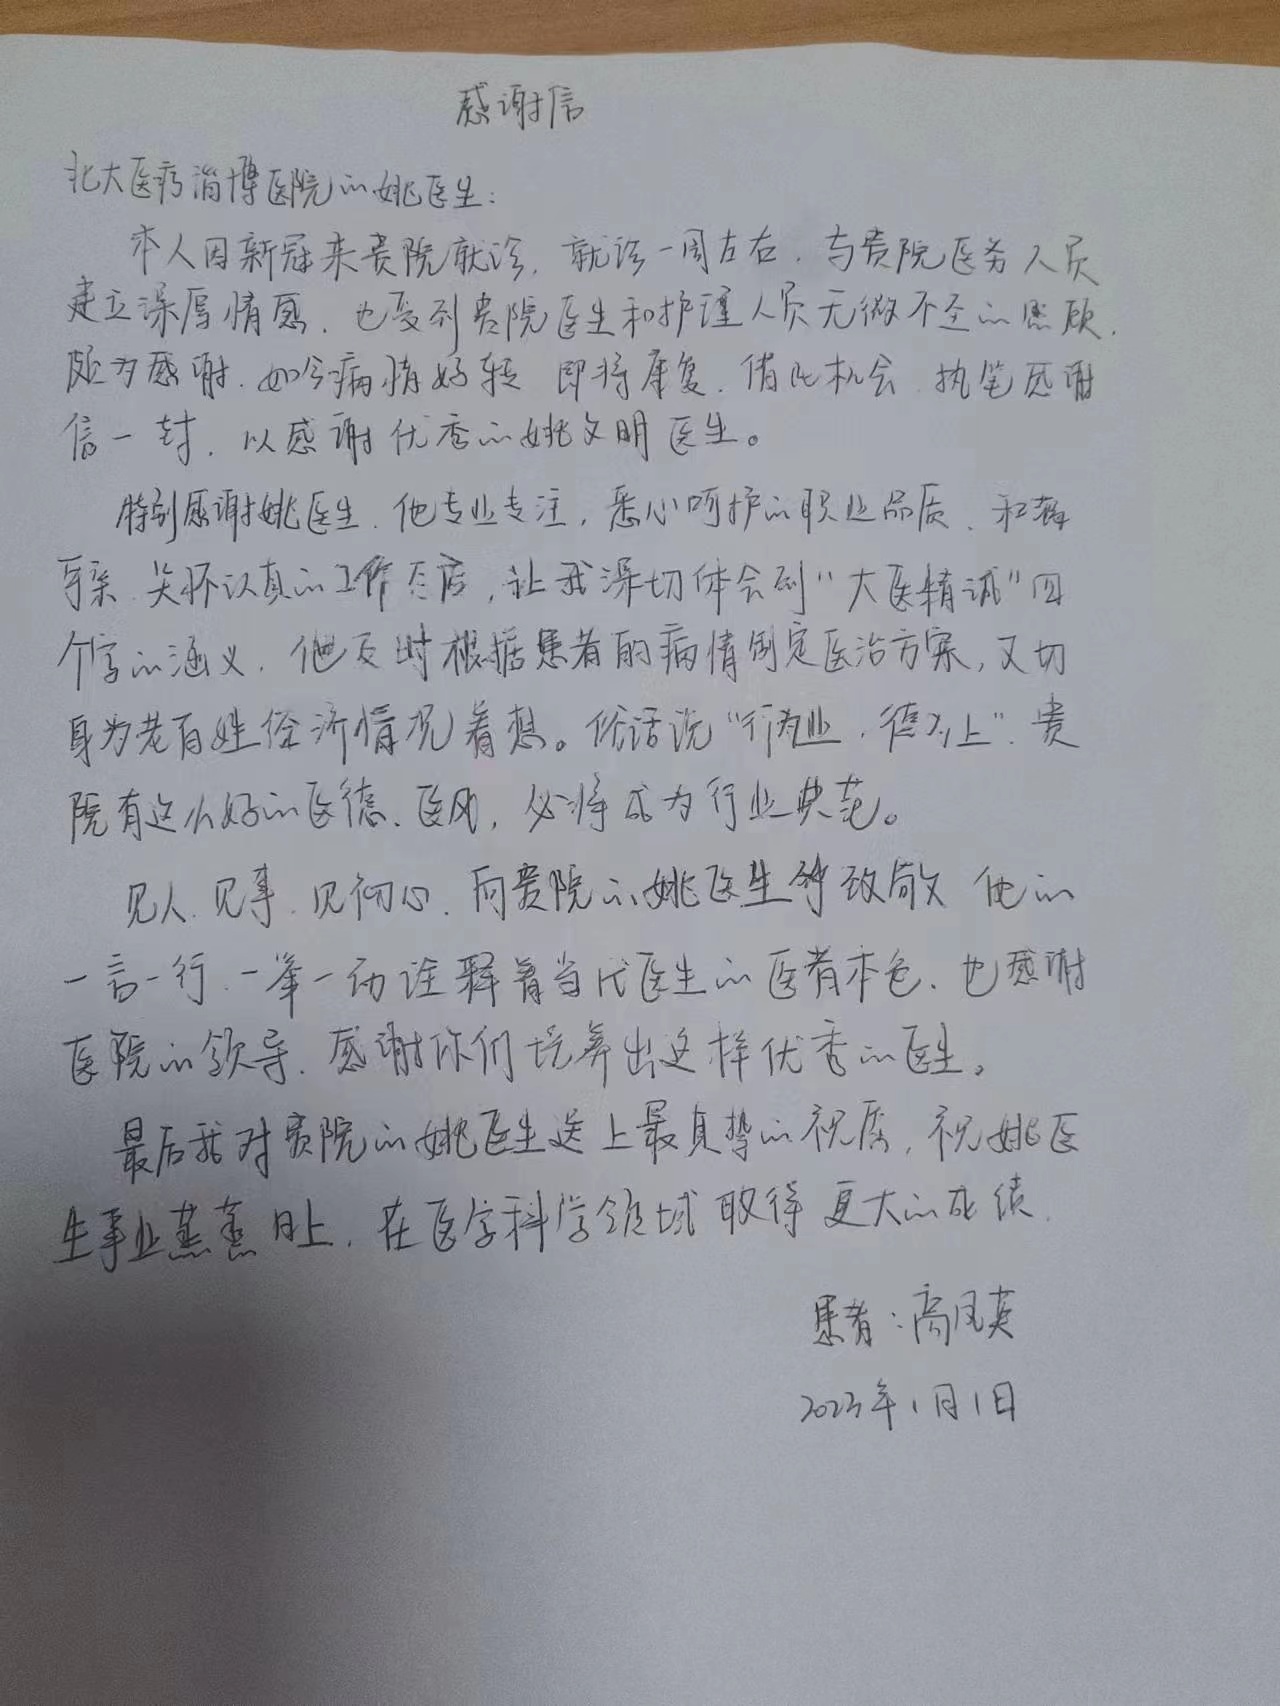 感谢信
北大医疗淄博医院的姚医生:
本人因新冠来贵院就诊,就诊一周左右,与贵院医务人员
建立深厚情感,也受到贵院医生和护理人员无微不至的照顾,
颇为感谢,如今病情好转 即将康复,借此机会,执笔感谢
信一封,以感谢优秀的姚文明医生。
特别感谢姚医生,他专业专注,悉心呵护的职业品质,和蔼
可亲、关怀认真的工作态度,让我深切体会到“大医精诚”四
个字的涵义,他及时根据患者的病情制定医治方案,又切
身为老百姓经济情况着想。俗话说“行为业,德为上”,贵
院有这么好的医德、医风,必将成为行业典范。
见人、见事、见初心,向贵院的姚医生等致敬 他的
一言一行,一举一动诠释着当代医生的医者本色,也感谢
医院的领导,感谢你们培养出这样优秀的医生。
最后我对贵院的姚医生送上最真挚的祝愿,祝姚医
生事业蒸蒸日上,在医学科学领域取得更大的成绩.
患者:高凤英
2023年1月1日